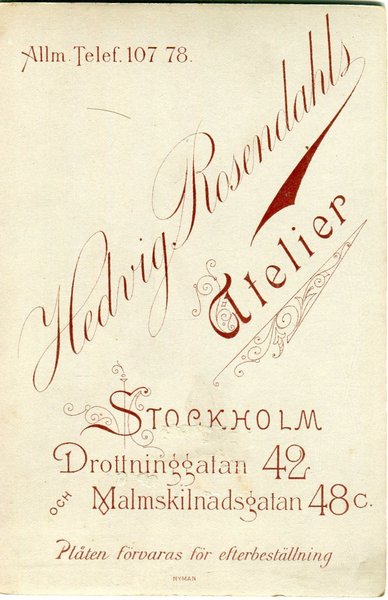 Allm. Telef. 107 78.
Hedvig Rosendahls
Atelier
STOCKHOLM
Drottninggatan 42
OCH Malmskilnadsgatan 48 C.
Plåten förvaras för efterbeställning
NYMAN